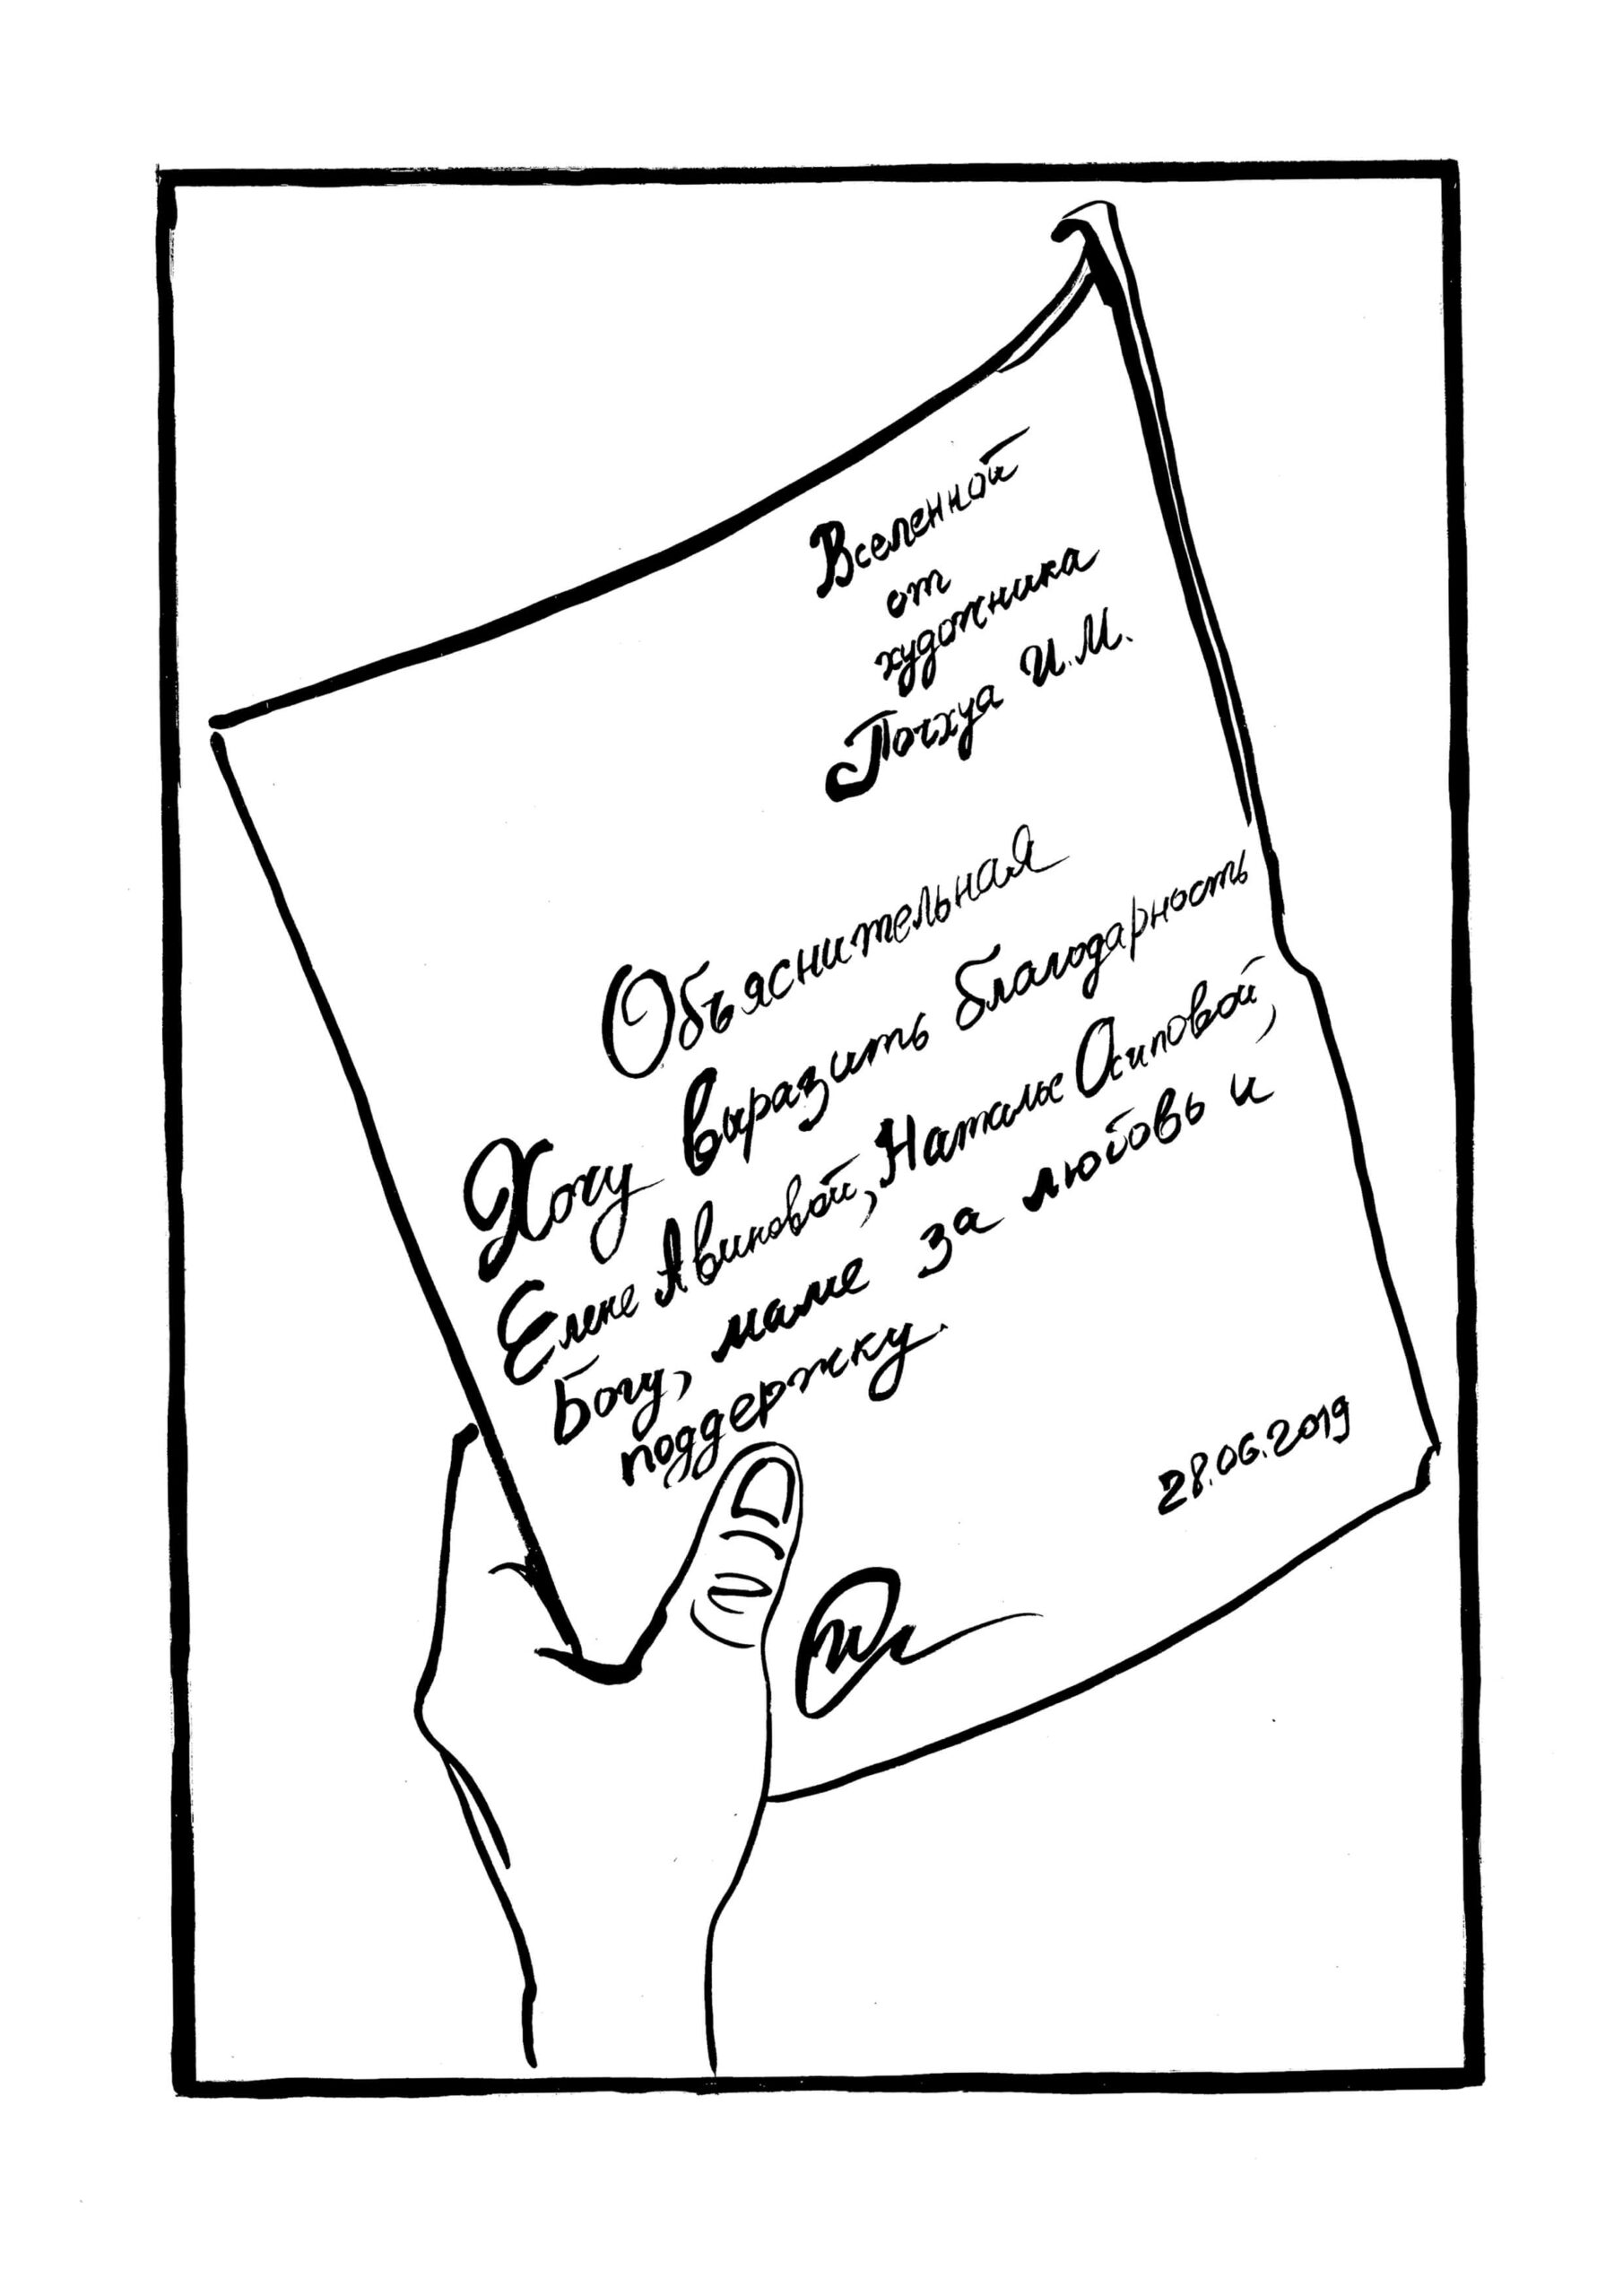 Вселенной
от
художника
Почхуа И.М.
Объяснительная
Хочу выразить благодарность
Елене Авиновой, Наталье Осиповой,
Богу, маме за любовь и
поддержку.
28.06.2019